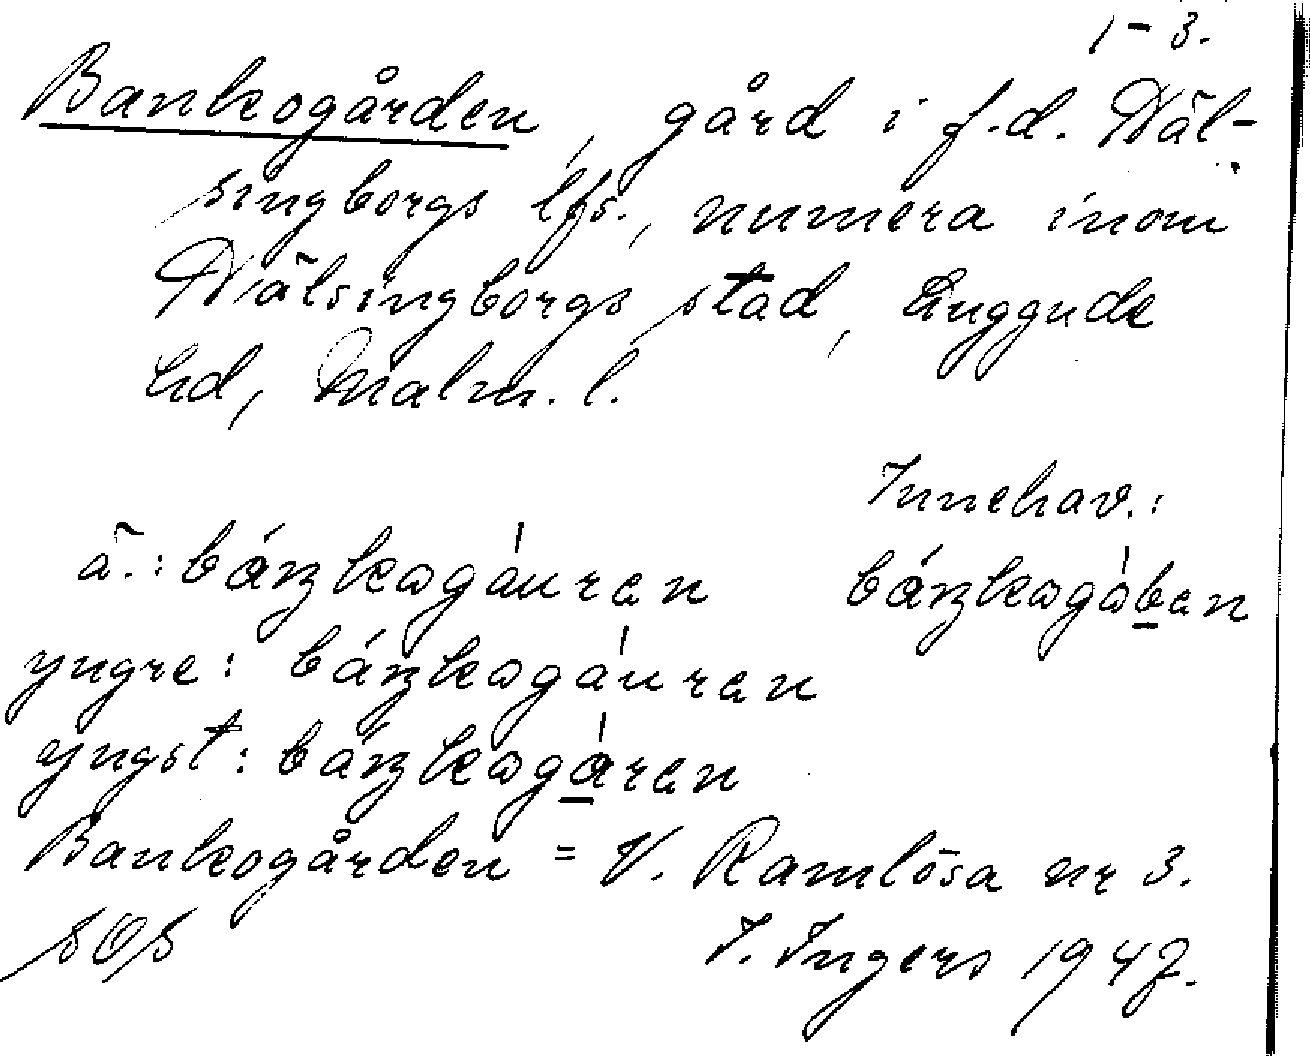 1-3.
Bankogården, gård i f.d. Häl-
singborgs lfs., numera inom
Hälsingborgs stad, Luggude
hd, Malm. l.
Innehav.:
ä.: báŋkɷgàurən báŋkɷgàbən
yngre: báŋkɷgàurən
yngst: báŋkɷgàrən
Bankogården = V. Ramlösa nr 3.
SOS I. Ingers 1947.